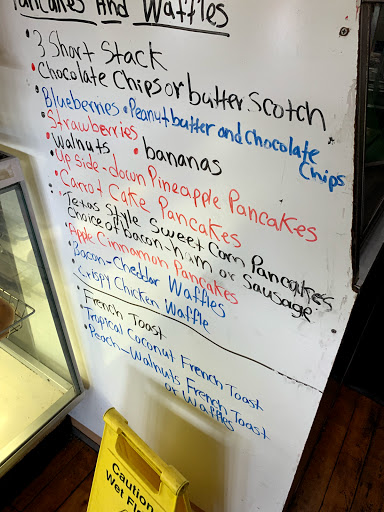 Pancakes And Waffles
• 3 Short Stack
• Chocolate Chips or butter. Scotch
• Blueberries • Peanut butter and Chocolate Chips
• Strawberries
• Walnuts • bananas
• Up side-down Pineapple Pancakes
• Carrot Cake Pancakes
• Texas Style Sweet Corn Pancakes
Choice of Bacon-ham or Sausage
• Apple Cinnamon Pancakes
• Bacon-Cheddar Waffles
• Crispy Chicken Waffle
• French Toast
• Tropical Coconut French Toast
• Peach-Walnuts French Toast
or Waffles
Caution
Wet Flo